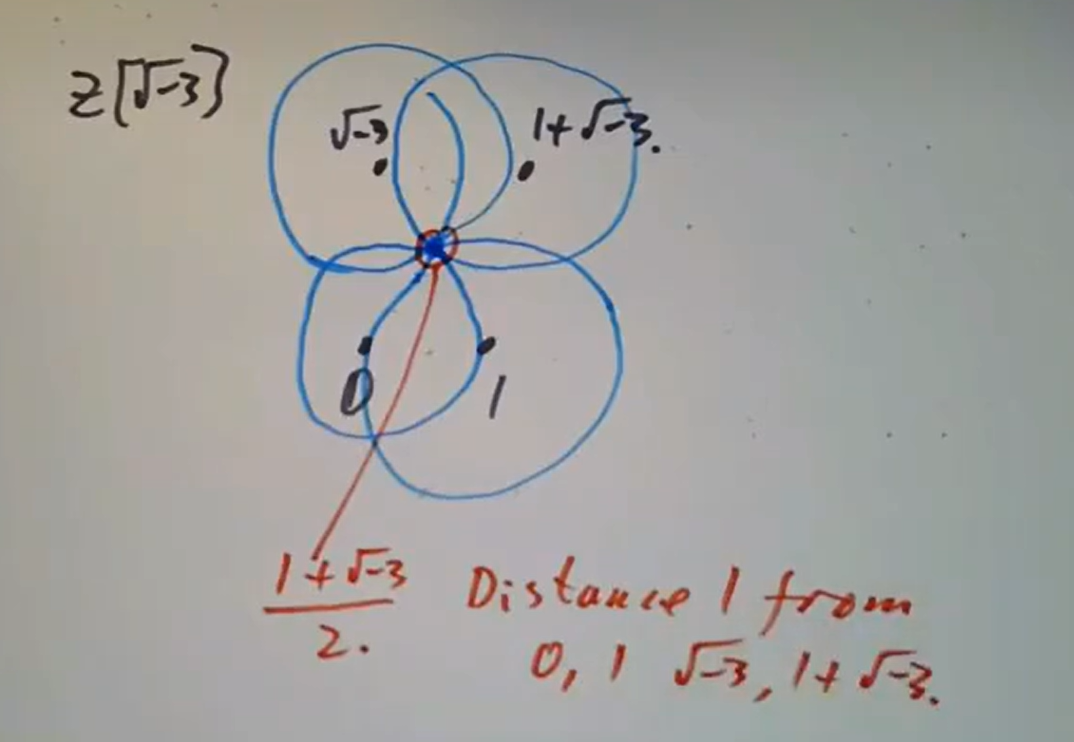 Z[√-3]
√-3
1+√-3.
0
1
1+√-3
2.
Distance 1 from
0, 1 √-3, 1+√-3.